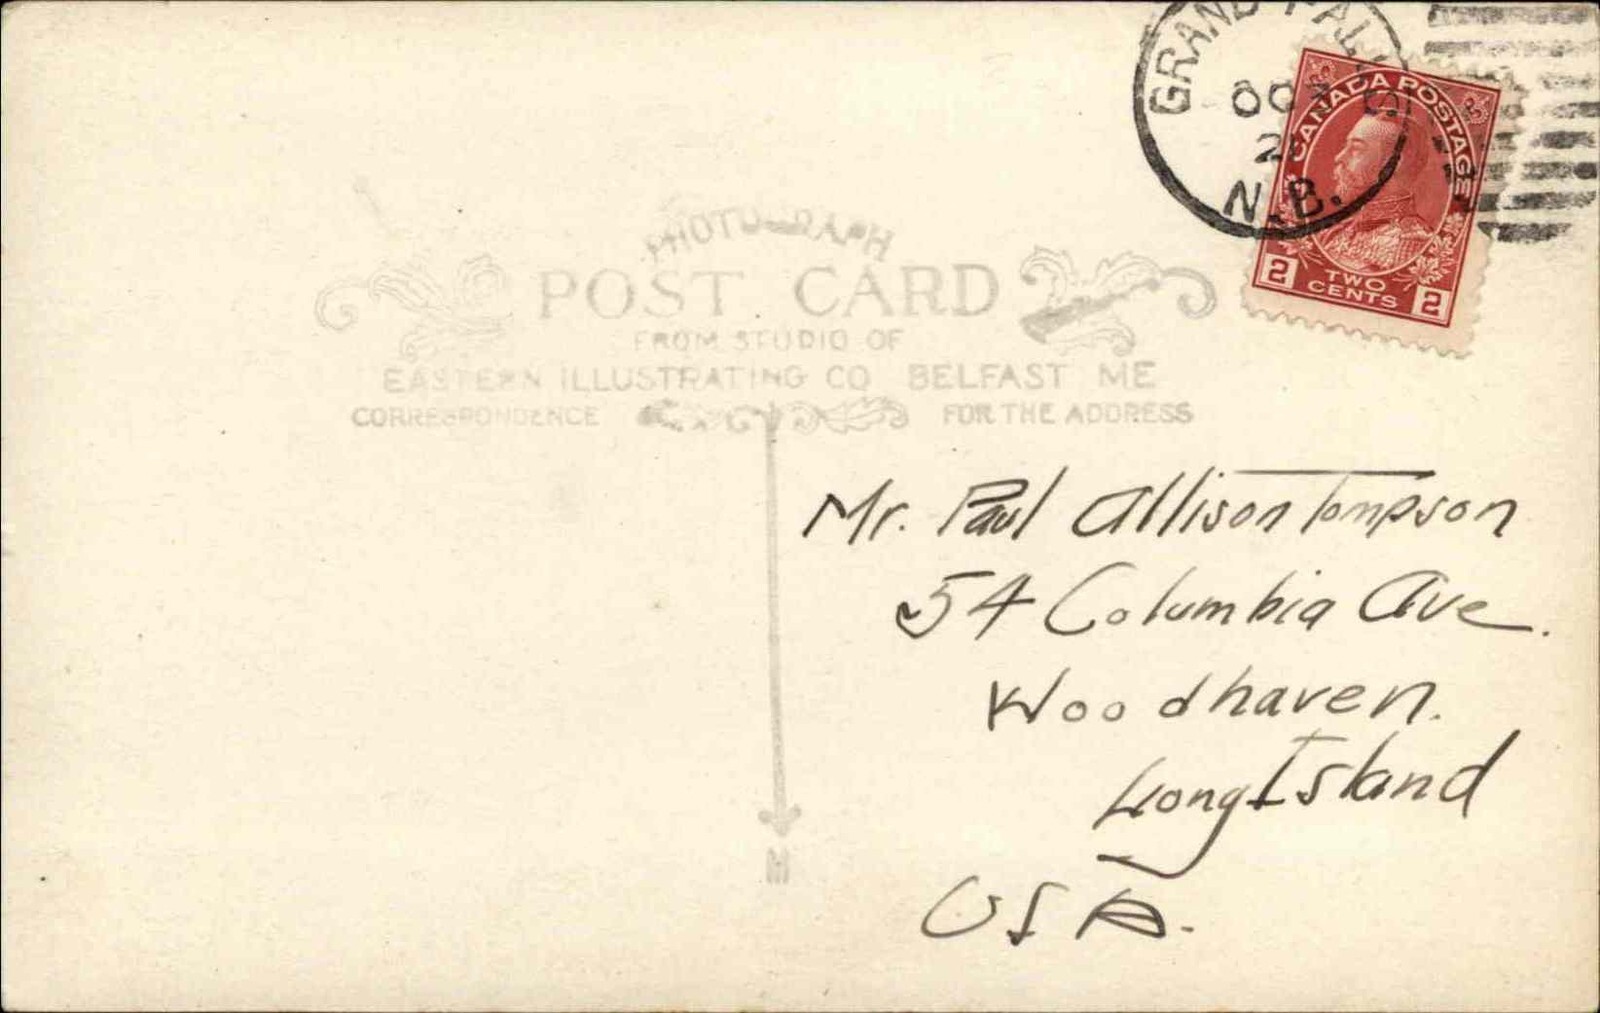 GRAND FALLS
OCT 5
2
N.B.
CANADA POSTAGE
2 TWO CENTS 2
PHOTOGRAPH
POST CARD
FROM STUDIO OF
EASTERN ILLUSTRATING CO BELFAST ME
CORRESPONDENCE FOR THE ADDRESS
Mr. Paul Allison Tompson
54 Columbia Ave.
Woodhaven.
Long Island
USA.
M